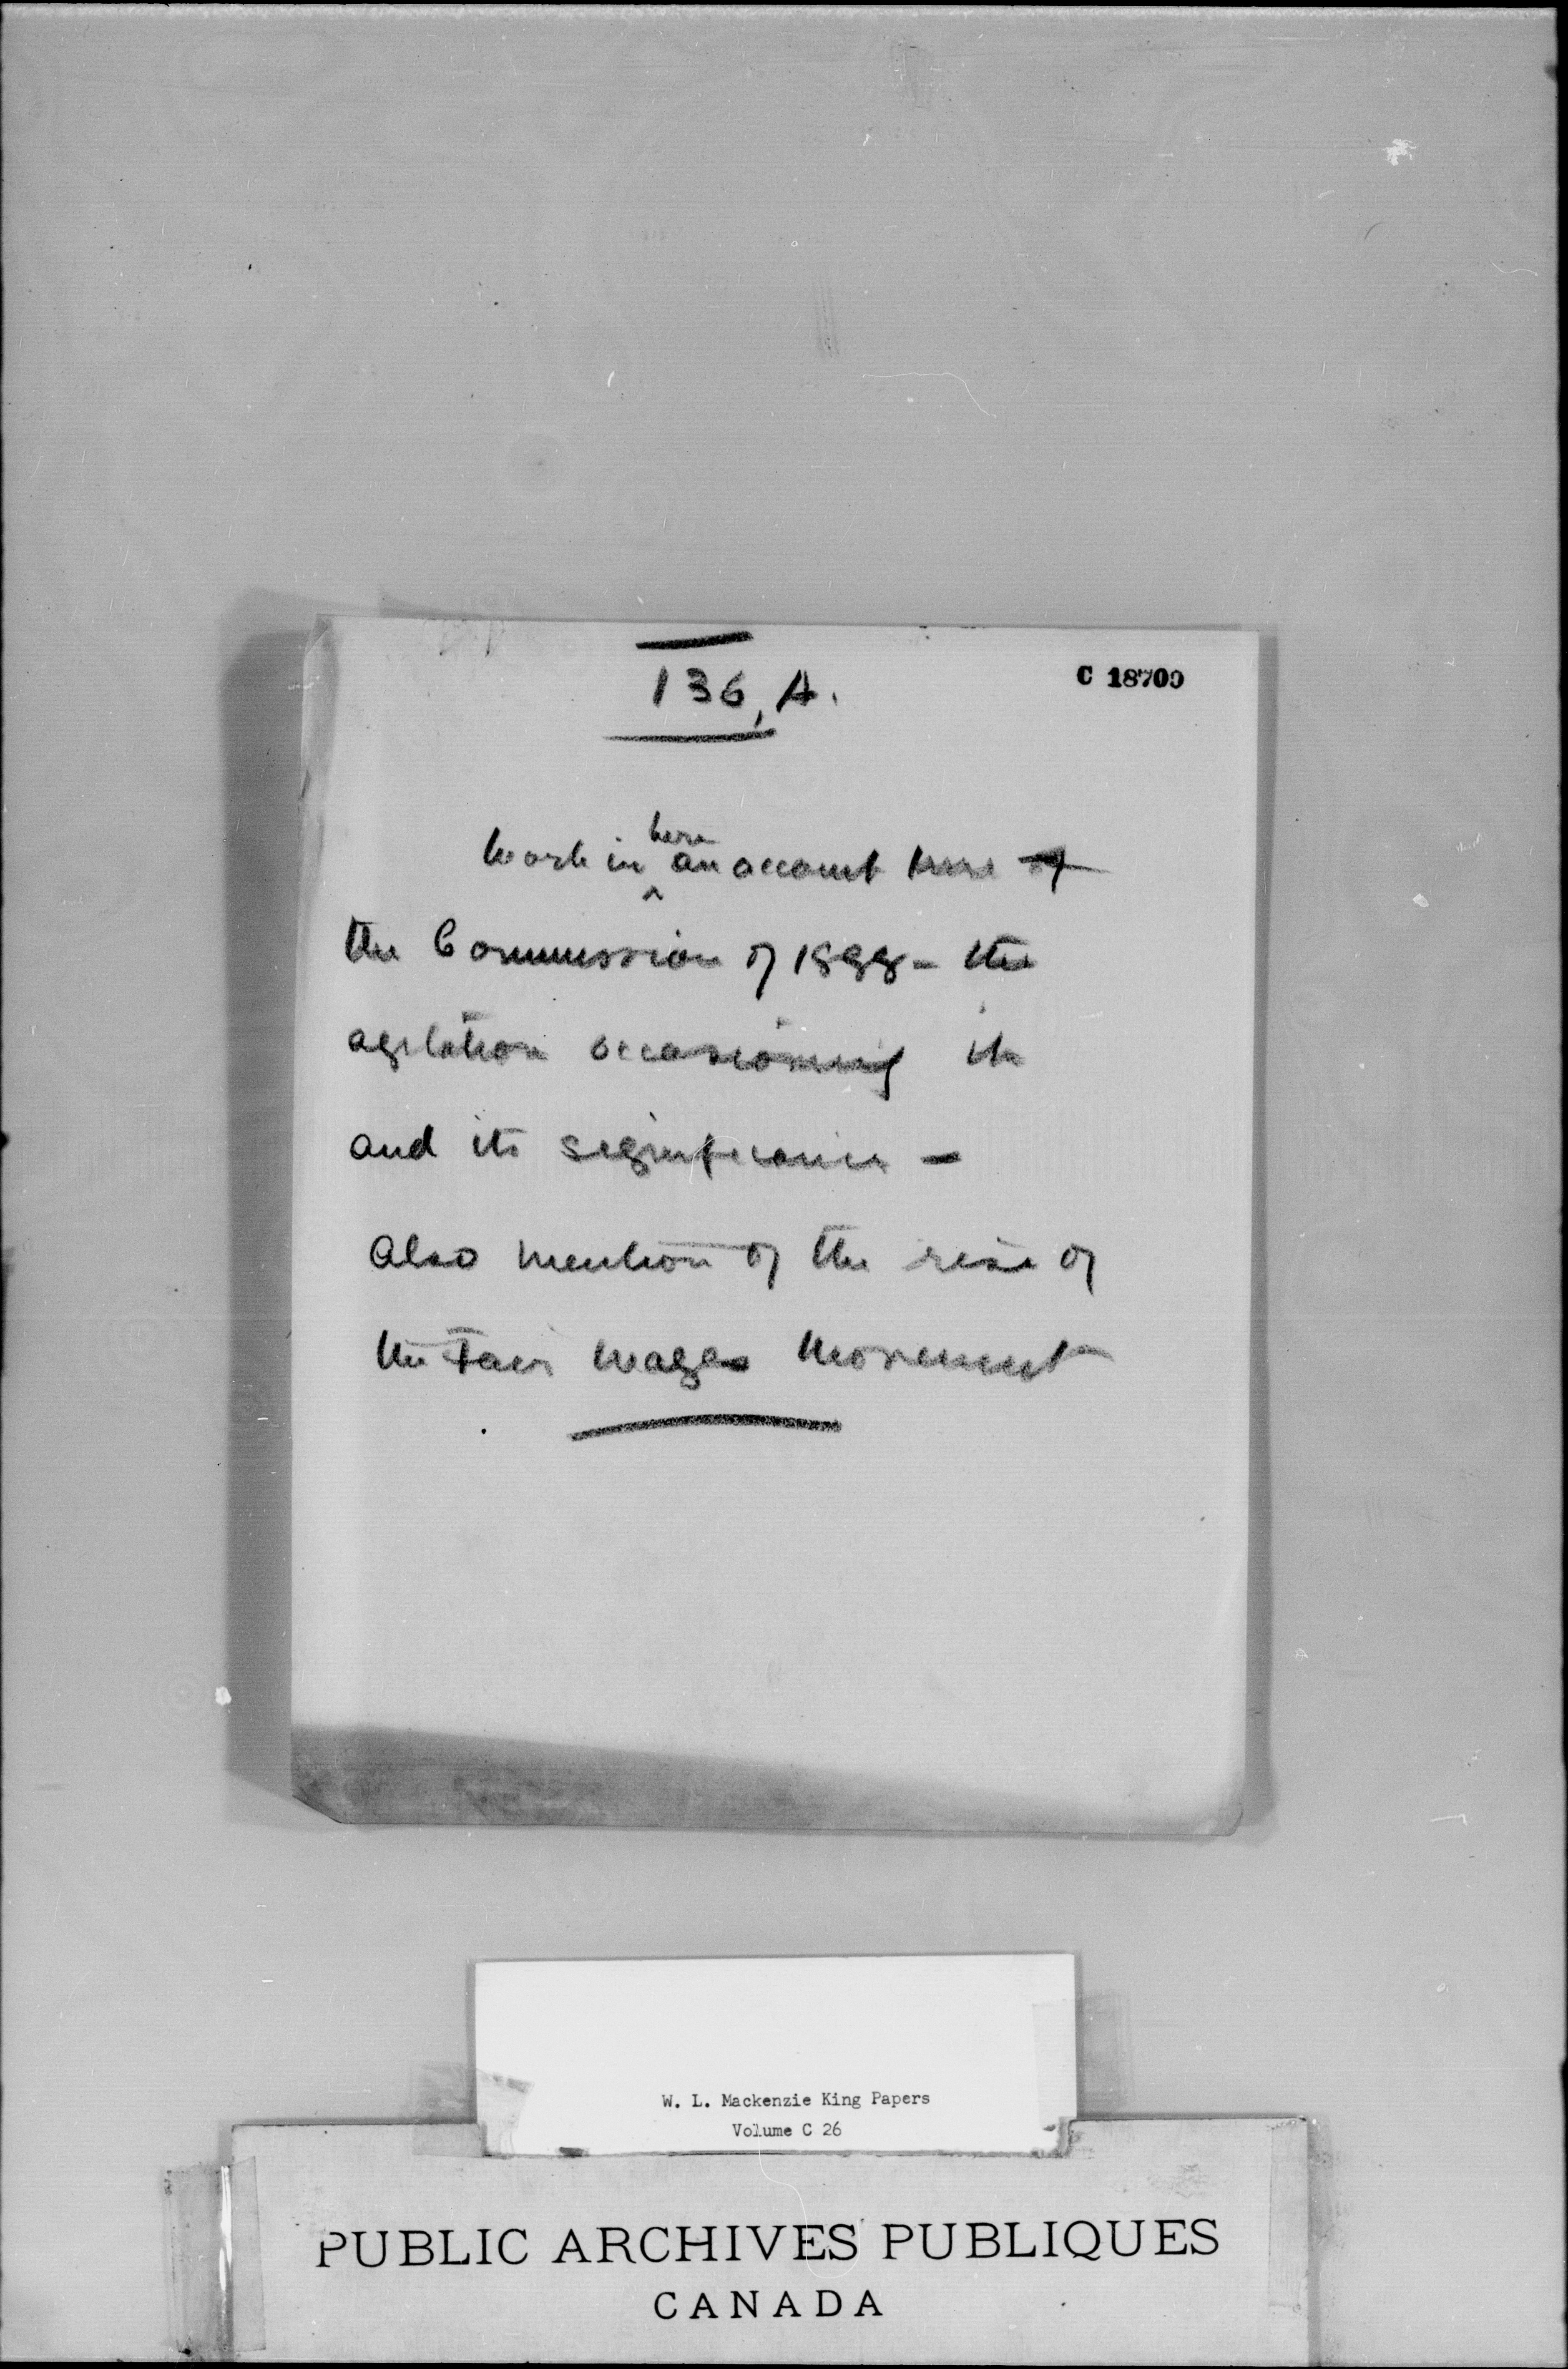 136, A.
C 18700
Work in ^here an account here of
the Commission of 1888 - the
agitation occasioning it
and its significance -
Also mention of the rise of
the Fair Wages Movement
W. L. Mackenzie King Papers
Volume C 26
PUBLIC ARCHIVES PUBLIQUES
CANADA